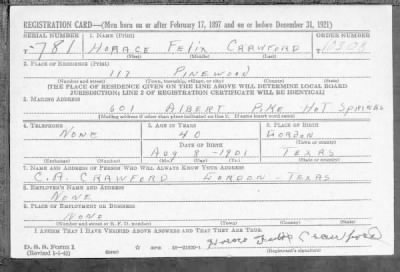 REGISTRATION CARD—(Men born on or after February 17, 1897 and on or before December 31, 1921)
SERIAL NUMBER 1. NAME (Print) ORDER NUMBER
T-781 HORACE FELIX CRAWFORD
(First) (Middle) (Last)
2. PLACE OF RESIDENCE (Print)
117 PINEWOOD
(Number and street) (Town, township, village, or city) (County) (State)
[THE PLACE OF RESIDENCE GIVEN ON THE LINE ABOVE WILL DETERMINE LOCAL BOARD
JURISDICTION; LINE 2 OF REGISTRATION CERTIFICATE WILL BE IDENTICAL]
3. MAILING ADDRESS
601 ALBERT PIKE HOT SPRINGS
[Mailing address if other than place indicated on line 2. If same insert word same]
4. TELEPHONE 5. AGE IN YEARS 6. PLACE OF BIRTH
NONE 40 GORDON
DATE OF BIRTH (Town or county)
AUG 8 -1901 TEXAS
(Exchange) (Number) (Mo.) (Day) (Yr.) (State or country)
7. NAME AND ADDRESS OF PERSON WHO WILL ALWAYS KNOW YOUR ADDRESS
C.A. CRAWFORD GORDON - TEXAS
8. EMPLOYER'S NAME AND ADDRESS
NONE
9. PLACE OF EMPLOYMENT OR BUSINESS
NONE
(Number and street or R. F. D. number) (Town) (County) (State)
I AFFIRM THAT I HAVE VERIFIED ABOVE ANSWERS AND THAT THEY ARE TRUE.
D. S. S. Form 1 Horace Felix Crawford
(Revised 1-1-42) (over) (Registrant's signature)